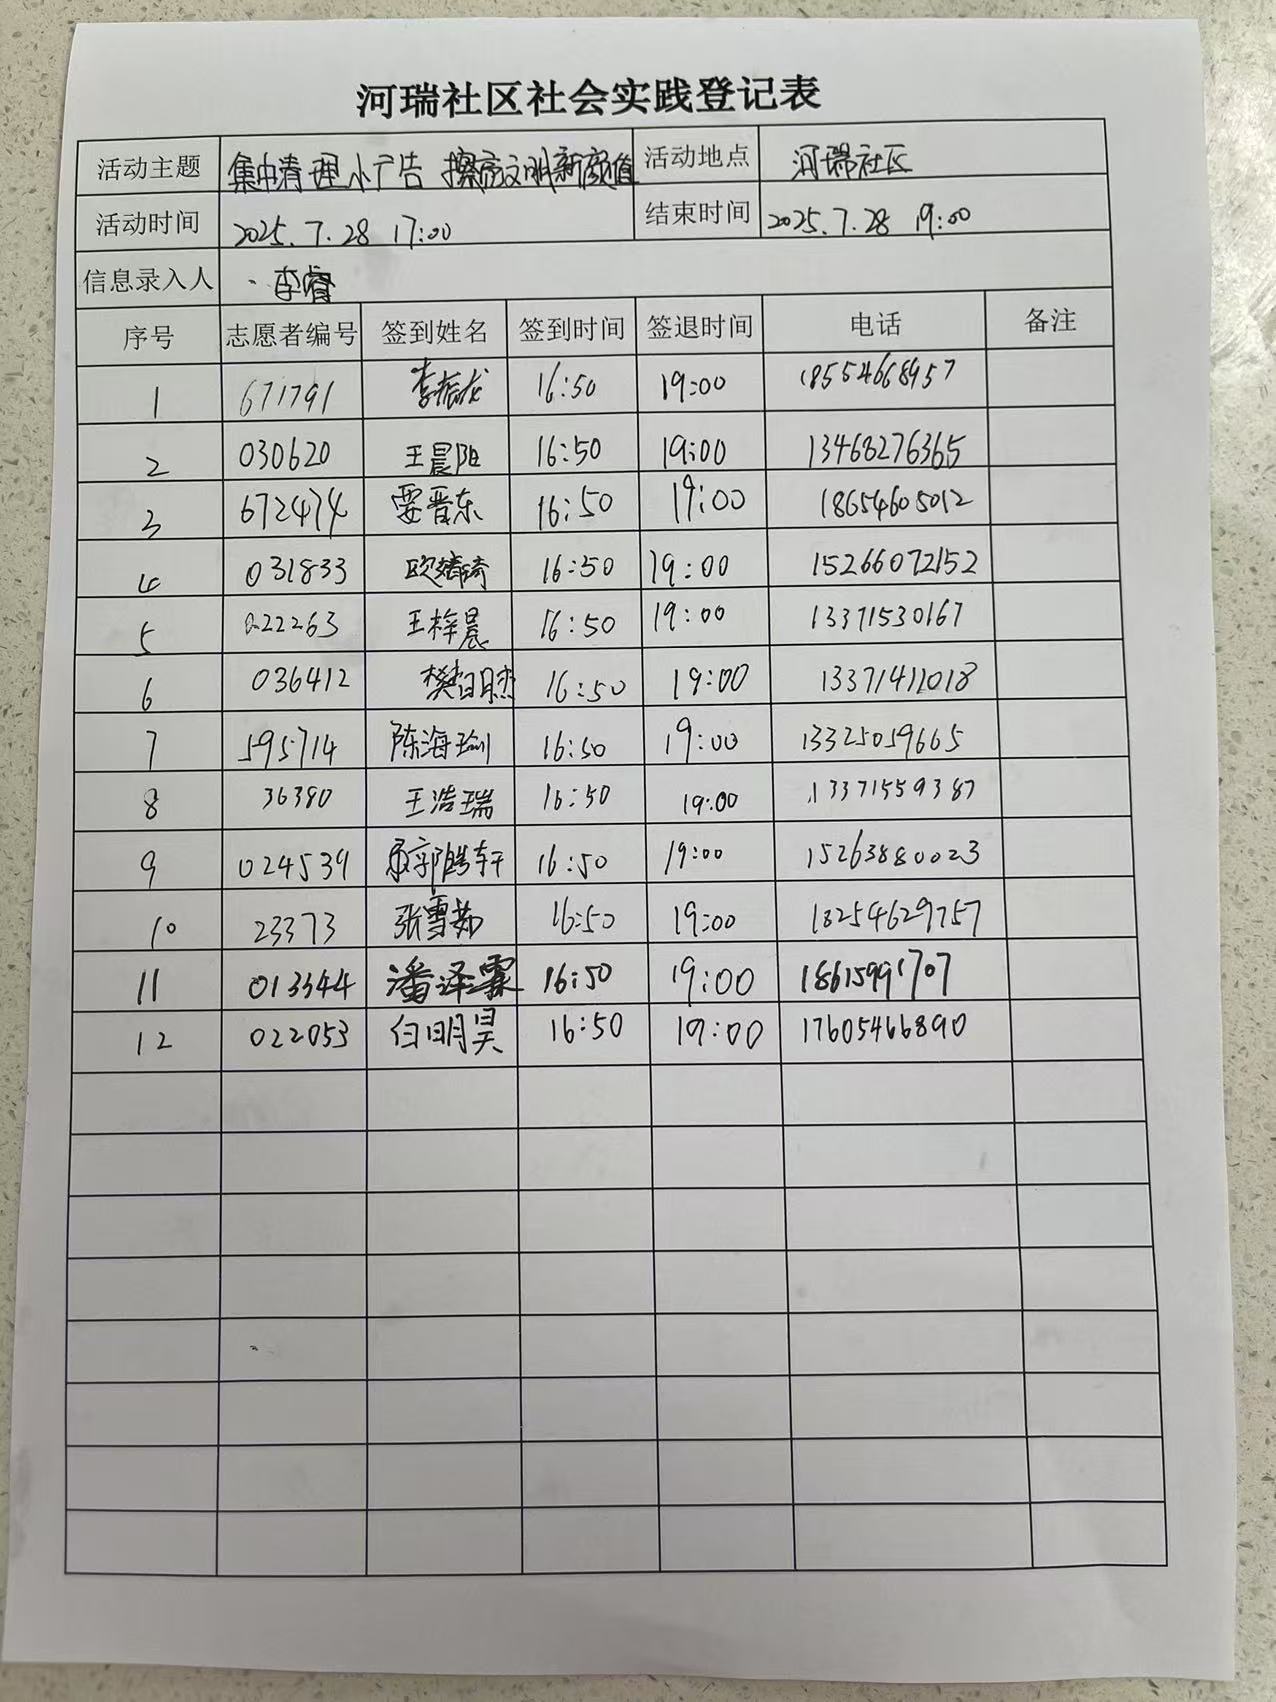 河瑞社区社会实践登记表
活动主题 集中清理小广告 擦亮文明新颜值 活动地点 河瑞社区
活动时间 2025.7.28 17:00 结束时间 2025.7.28 19:00
信息录入人 李睿
序号 志愿者编号 签到姓名 签到时间 签退时间 电话 备注
1 671791 李振龙 16:50 19:00 18554668957
2 030620 王晨阳 16:50 19:00 13468276365
3 672474 要晋东 16:50 19:00 18654605012
4 031833 欧婧琦 16:50 19:00 15266072152
5 022263 王梓晨 16:50 19:00 13371530167
6 036412 樊明杰 16:50 19:00 13371411018
7 595714 陈海瑜 16:50 19:00 13325059665
8 36380 王浩瑞 16:50 19:00 13371559387
9 024539 16:50 19:00 15263880023
10 23373 张雪茹 16:50 19:00 18254629757
11 013344 潘泽霖 16:50 19:00 18615991707
12 022053 白明昊 16:50 19:00 17605466890